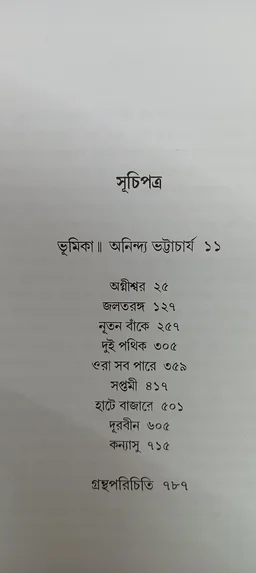 সূচিপত্র
ভূমিকা॥ অনিন্দ্য ভট্টাচার্য ১১
অগ্নীশ্বর ২৫
জলতরঙ্গ ১২৭
নূতন বাঁকে ২৫৭
দুই পথিক ৩০৫
ওরা সব পারে ৩৫৯
সপ্তমী ৪১৭
হাটে বাজারে ৫০১
দূরবীন ৬০৫
কন্যাসু ৭১৫
গ্রন্থপরিচিতি ৭৮৭